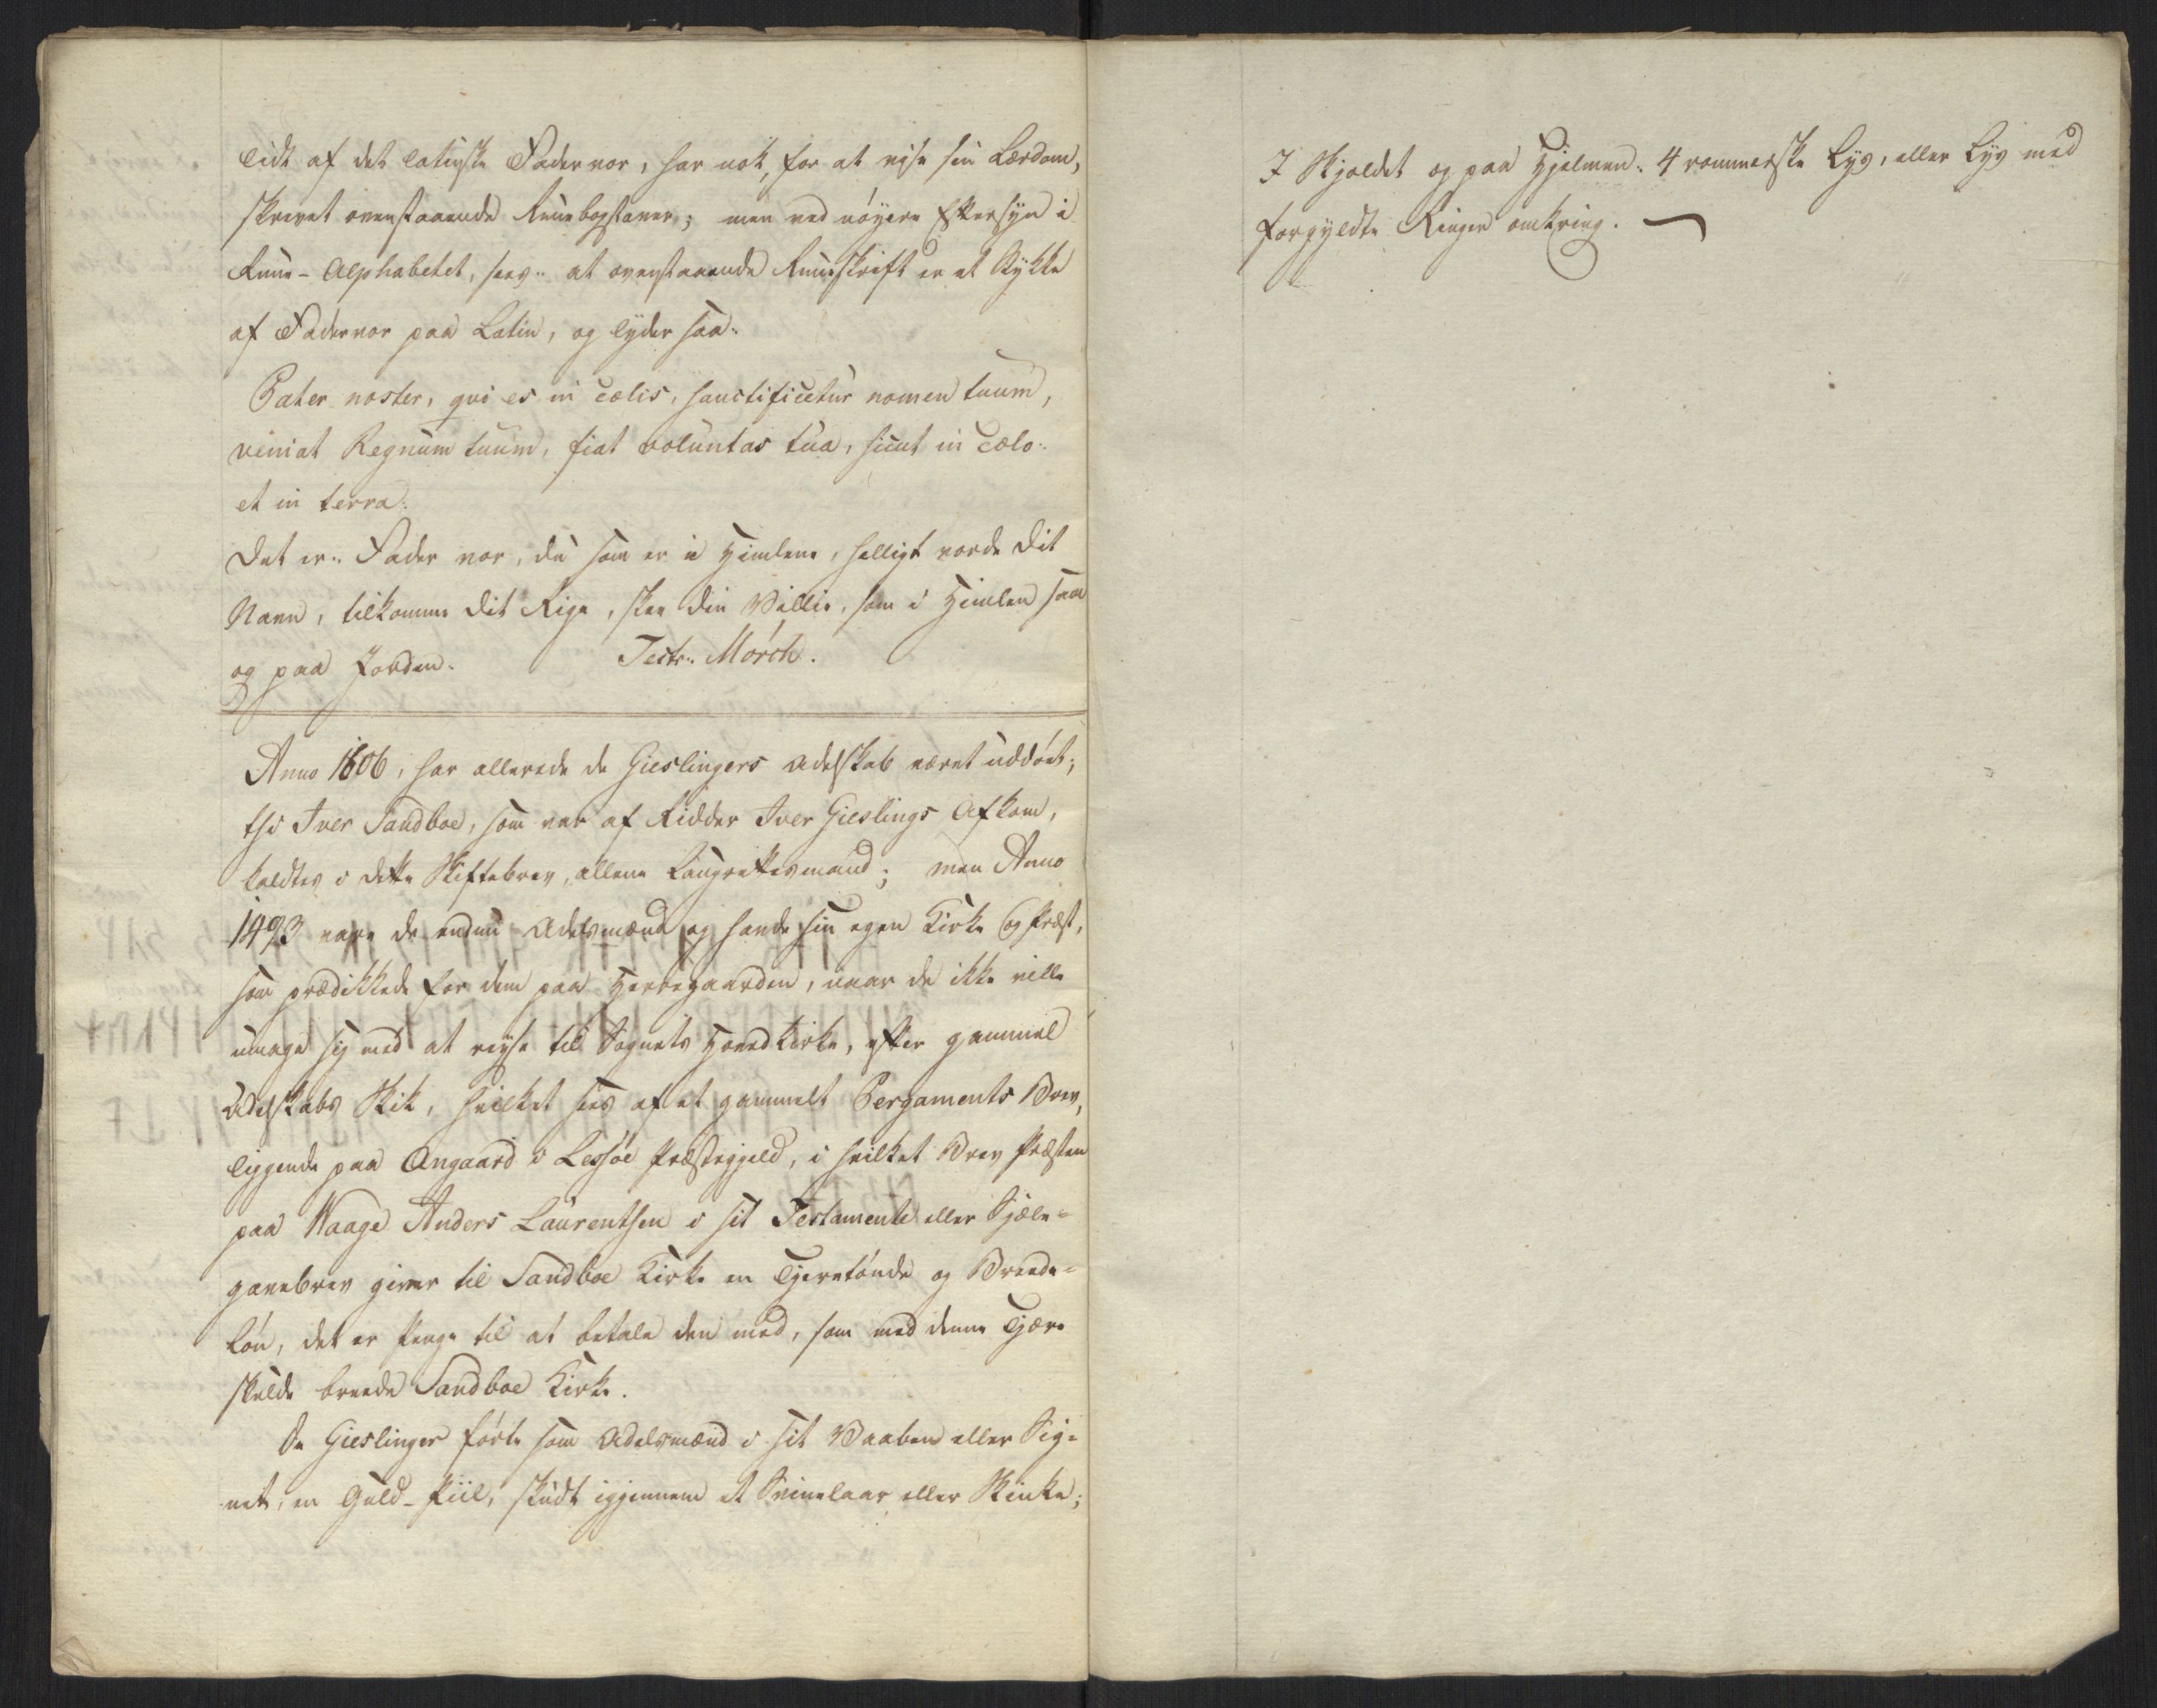 lidt af det latinske Fadervor, har nok, for at vise sin Lærdom,
skrevet ovenstaaende Runebogstaver; men ved nöyere Eftersyn i
Rune-Alphabetet, sees: at ovenstaaende Runeskrift er et Stykke
af Fadervor paa Latin, og lyder saa:
Pater noster, qvi es in cœlis, sanctificetur nomen tuum,
veniat Regnum tuum, fiat voluntas tua, sicut in cœlo:
et in terra:
Det er: Fader vor, du som er i Himlene, helligt vorde dit
Navn, tilkomme dit Rige, skee din Villie, som i Himlen saa
og paa Jorden. Testr: Mörch.
Anno 1606, har allerede de Gieslingers Adelskab været uddöet;
thi Iver Sandboe, som var af Ridder Iver Gieslings Afkom,
kaldtes i dette Skiftebrev, allene Laugrettesmand; men Anno
1493 vare de endnu Adelsmænd og havde sin egen Kirke og Præst,
som prædikkede for dem paa Herregaarden, naar de ikke ville
umage sig med at reyse til Sognets Hovedkirke, efter gammel
Adelskabs Skik, hvilket sees af et gammelt Pergaments Brev,
liggende paa Angaard i Lessöe Præstegjeld, i hvilket Brev Præsten
paa Waage Anders Laurentsen i sit Testamente eller Sjæle-
gavebrev giver til Sandboe Kirke en Tjeretönde og Breede-
lön, det er Penge til at betale den med, som med denne Tjære
skulde breede Sandboe Kirke.
De Gieslinger förte som Adelsmænd i sit Vaaben eller Sig-
net, en Guld-Piil, skudt igjennem et Svinelaar eller Skinke;
I Skjoldet og paa Hjelmen: 4 rommerske Lys, eller Lys med
forgyldte Ringer omkring.